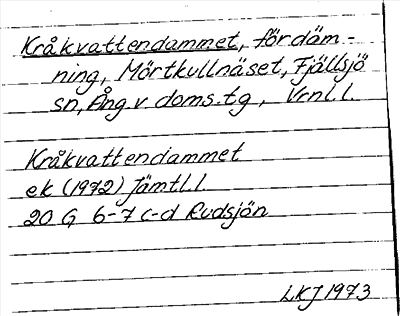 Kråkvattendammet, fördäm-
ning, Mörtkullnäset, Fjällsjö
sn, Ång. v doms. tg, Vrnl. l.
Kråkvattendammet
ek (1972) Jämtl. l
20 G 6-7 c-d Rudsjön
LKJ 1973